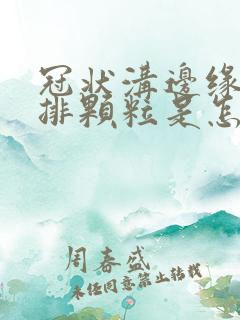 冠状溝邊缘
排顆粒是怎
周春盛
未经同意禁止转载